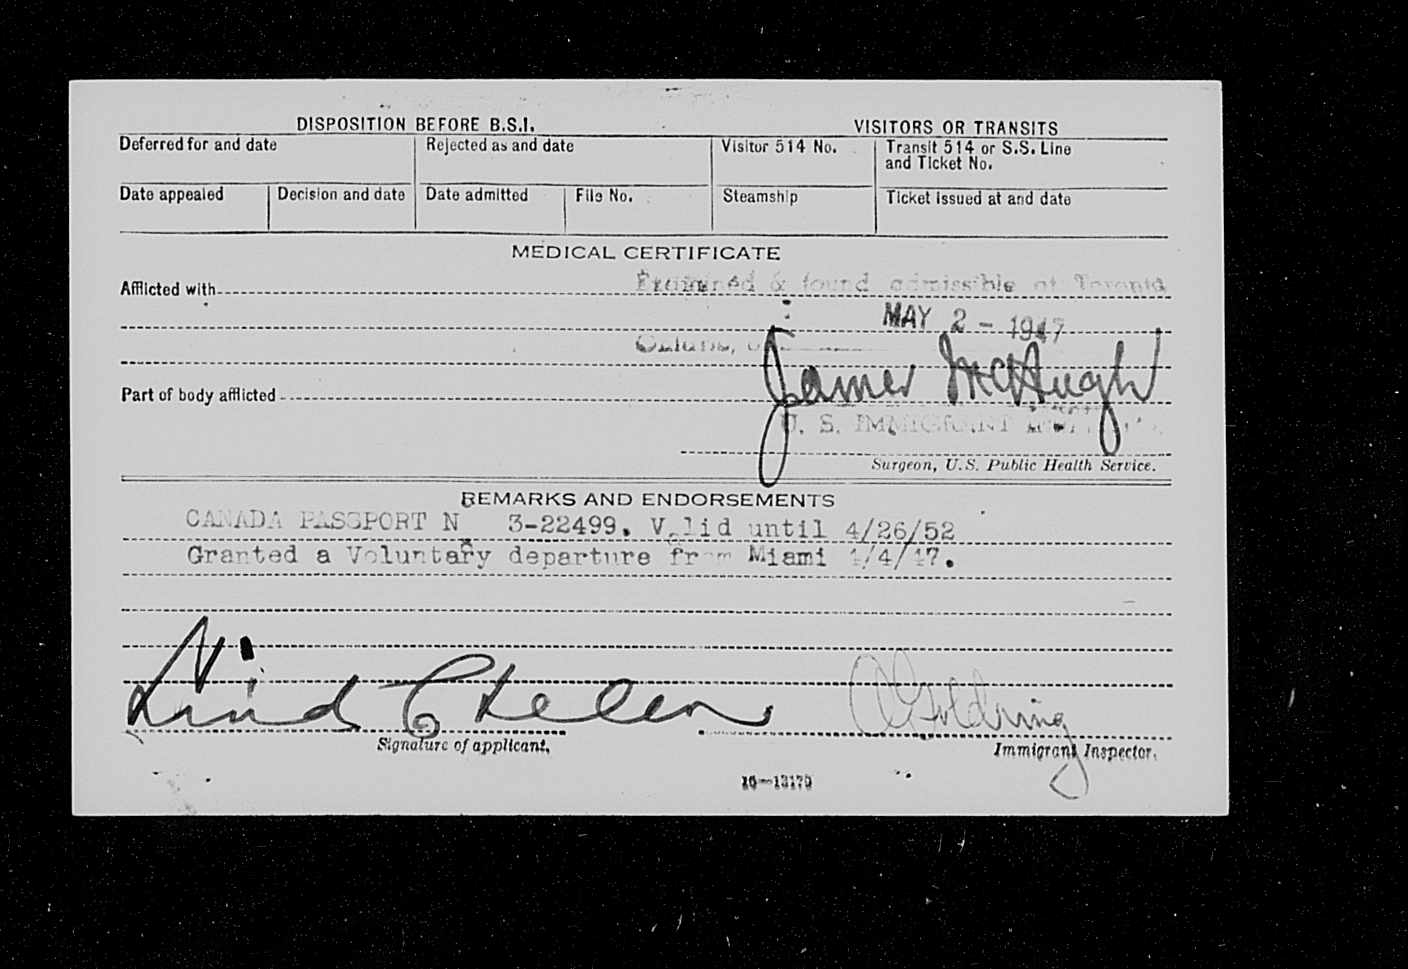 DISPOSITION BEFORE B.S.I.
VISITORS OR TRANSITS
Deferred for and date
Rejected as and date
Visitor 514 No.
Transit 514 or S.S. Line
and Ticket No.
Date appealed
Decision and date
Date admitted
File No.
Steamship
Ticket issued at and date
MEDICAL CERTIFICATE
Afflicted with
Examined & found admissible at Toronto
MAY 2 - 1947
James McHugh
Part of body afflicted
U. S. IMMIGRANT
Surgeon, U.S. Public Health Service.
REMARKS AND ENDORSEMENTS
CANADA PASSPORT N 3-22499. Valid until 4/26/52
Granted a Voluntary departure from Miami 4/4/47.
Signature of applicant.
Immigrant Inspector.
16—13179